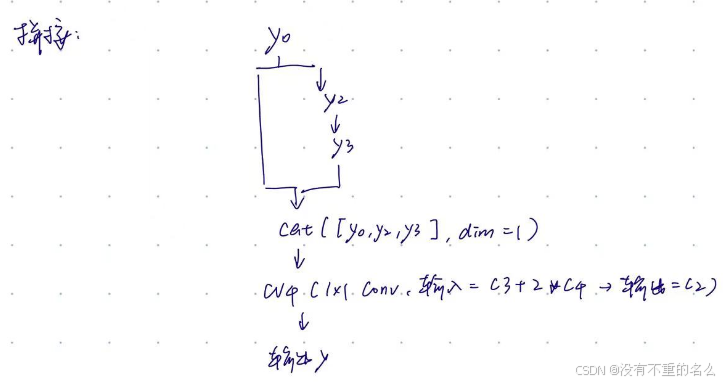 拼接:
y0
y2
y3
cat([y0,y2,y3], dim=1)
cv4 (1x1 Conv, 输入 = C3+2*C4 → 输出=C2)
输出 y
CSDN @没有不重的名么